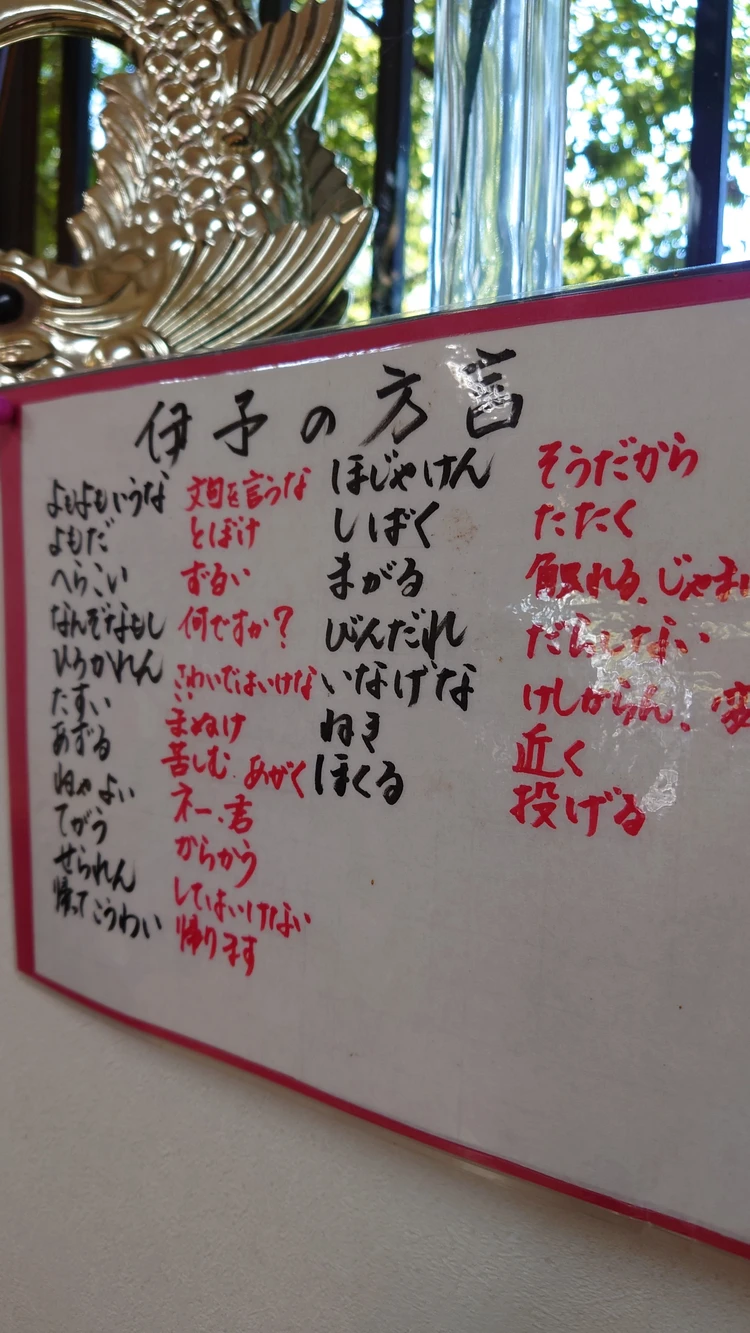 伊予の方言
よもよもいうな 文句を言うな
よもだ とぼけ
へらこい ずるい
なんぞなもし 何ですか?
いろわれん さわいではいけない
たすい まぬけ
あずる 苦しむ、あがく
ねやよい ネー、君
てがう からかう
せられん してはいけない
帰ってこうわい 帰ります
ほじゃけん そうだから
しばく たたく
まがる 触れる、じゃま
びんだれ だらしない
いなげな けしからん、変
ねき 近く
ほくる 投げる